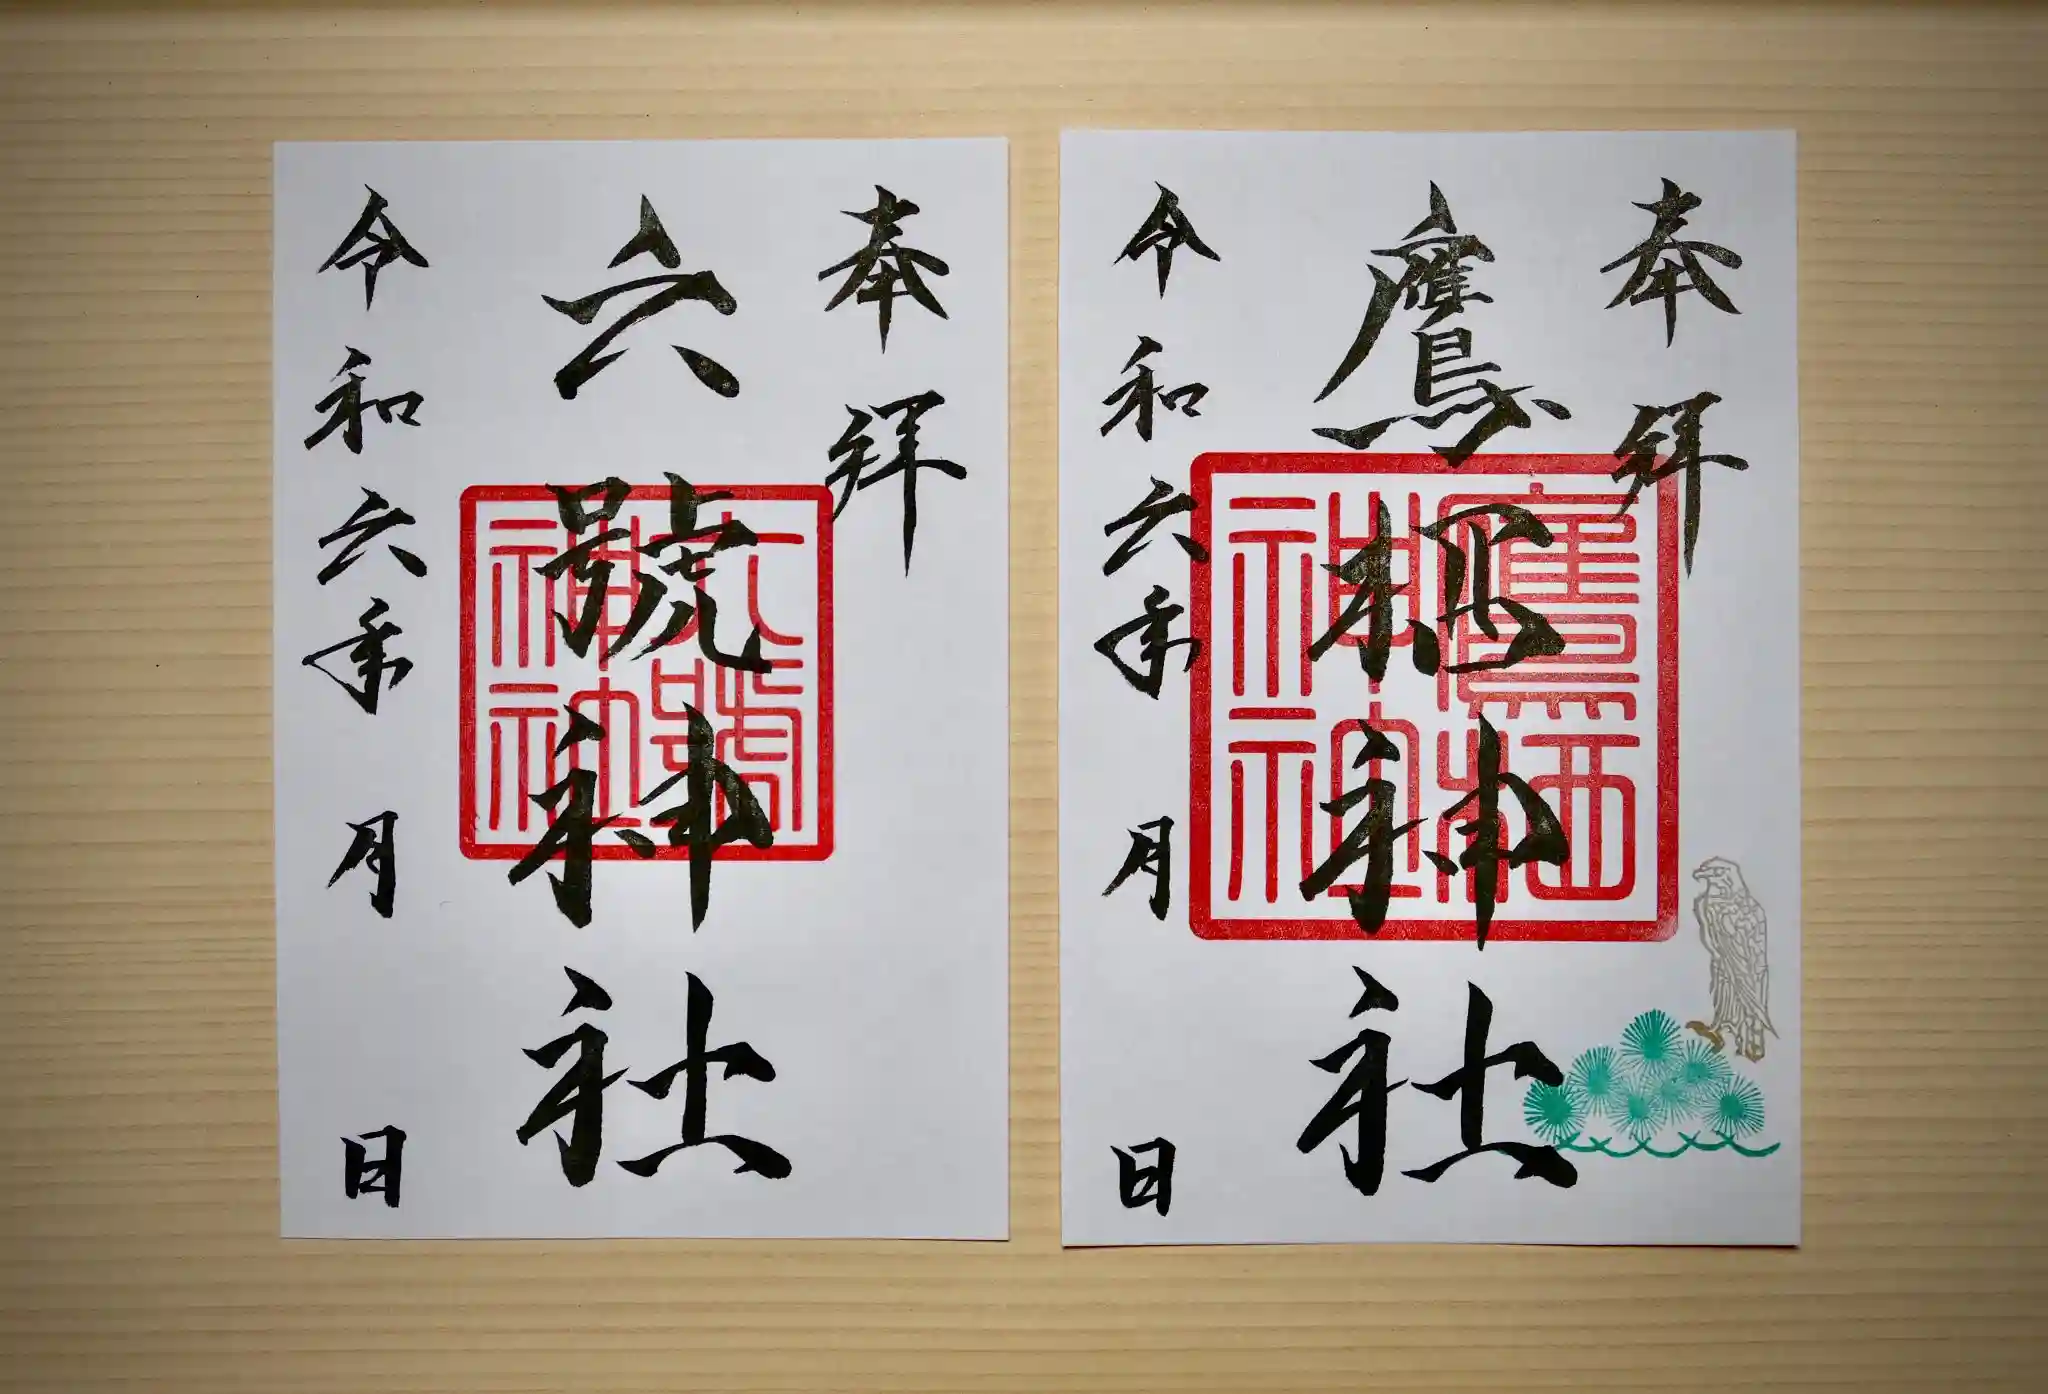 奉拝
鷹栖神社
鷹栖神社
令和六年 月 日
奉拝
六號神社
六號神社
令和六年 月 日